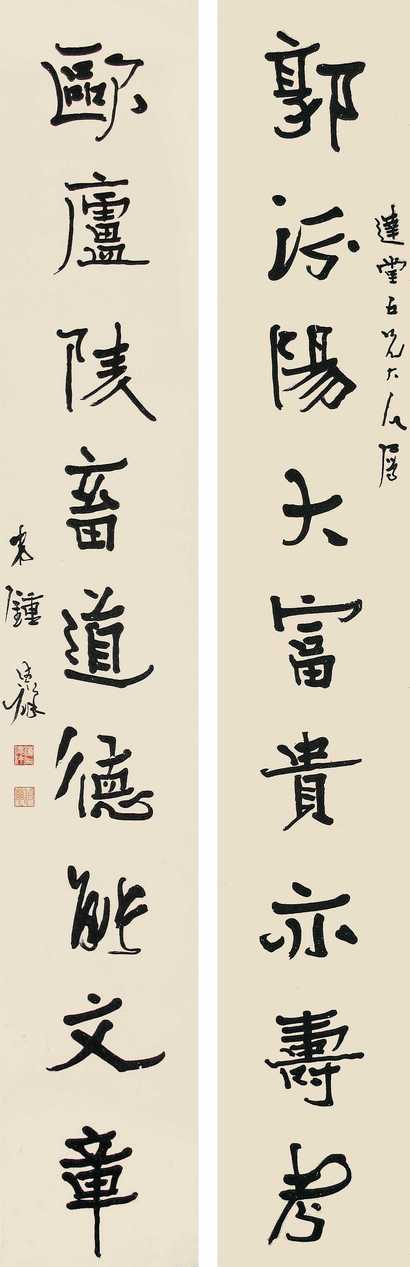 郭汾陽大富貴亦壽考
達堂五兄大人屬
歐廬陵畜道德能文章